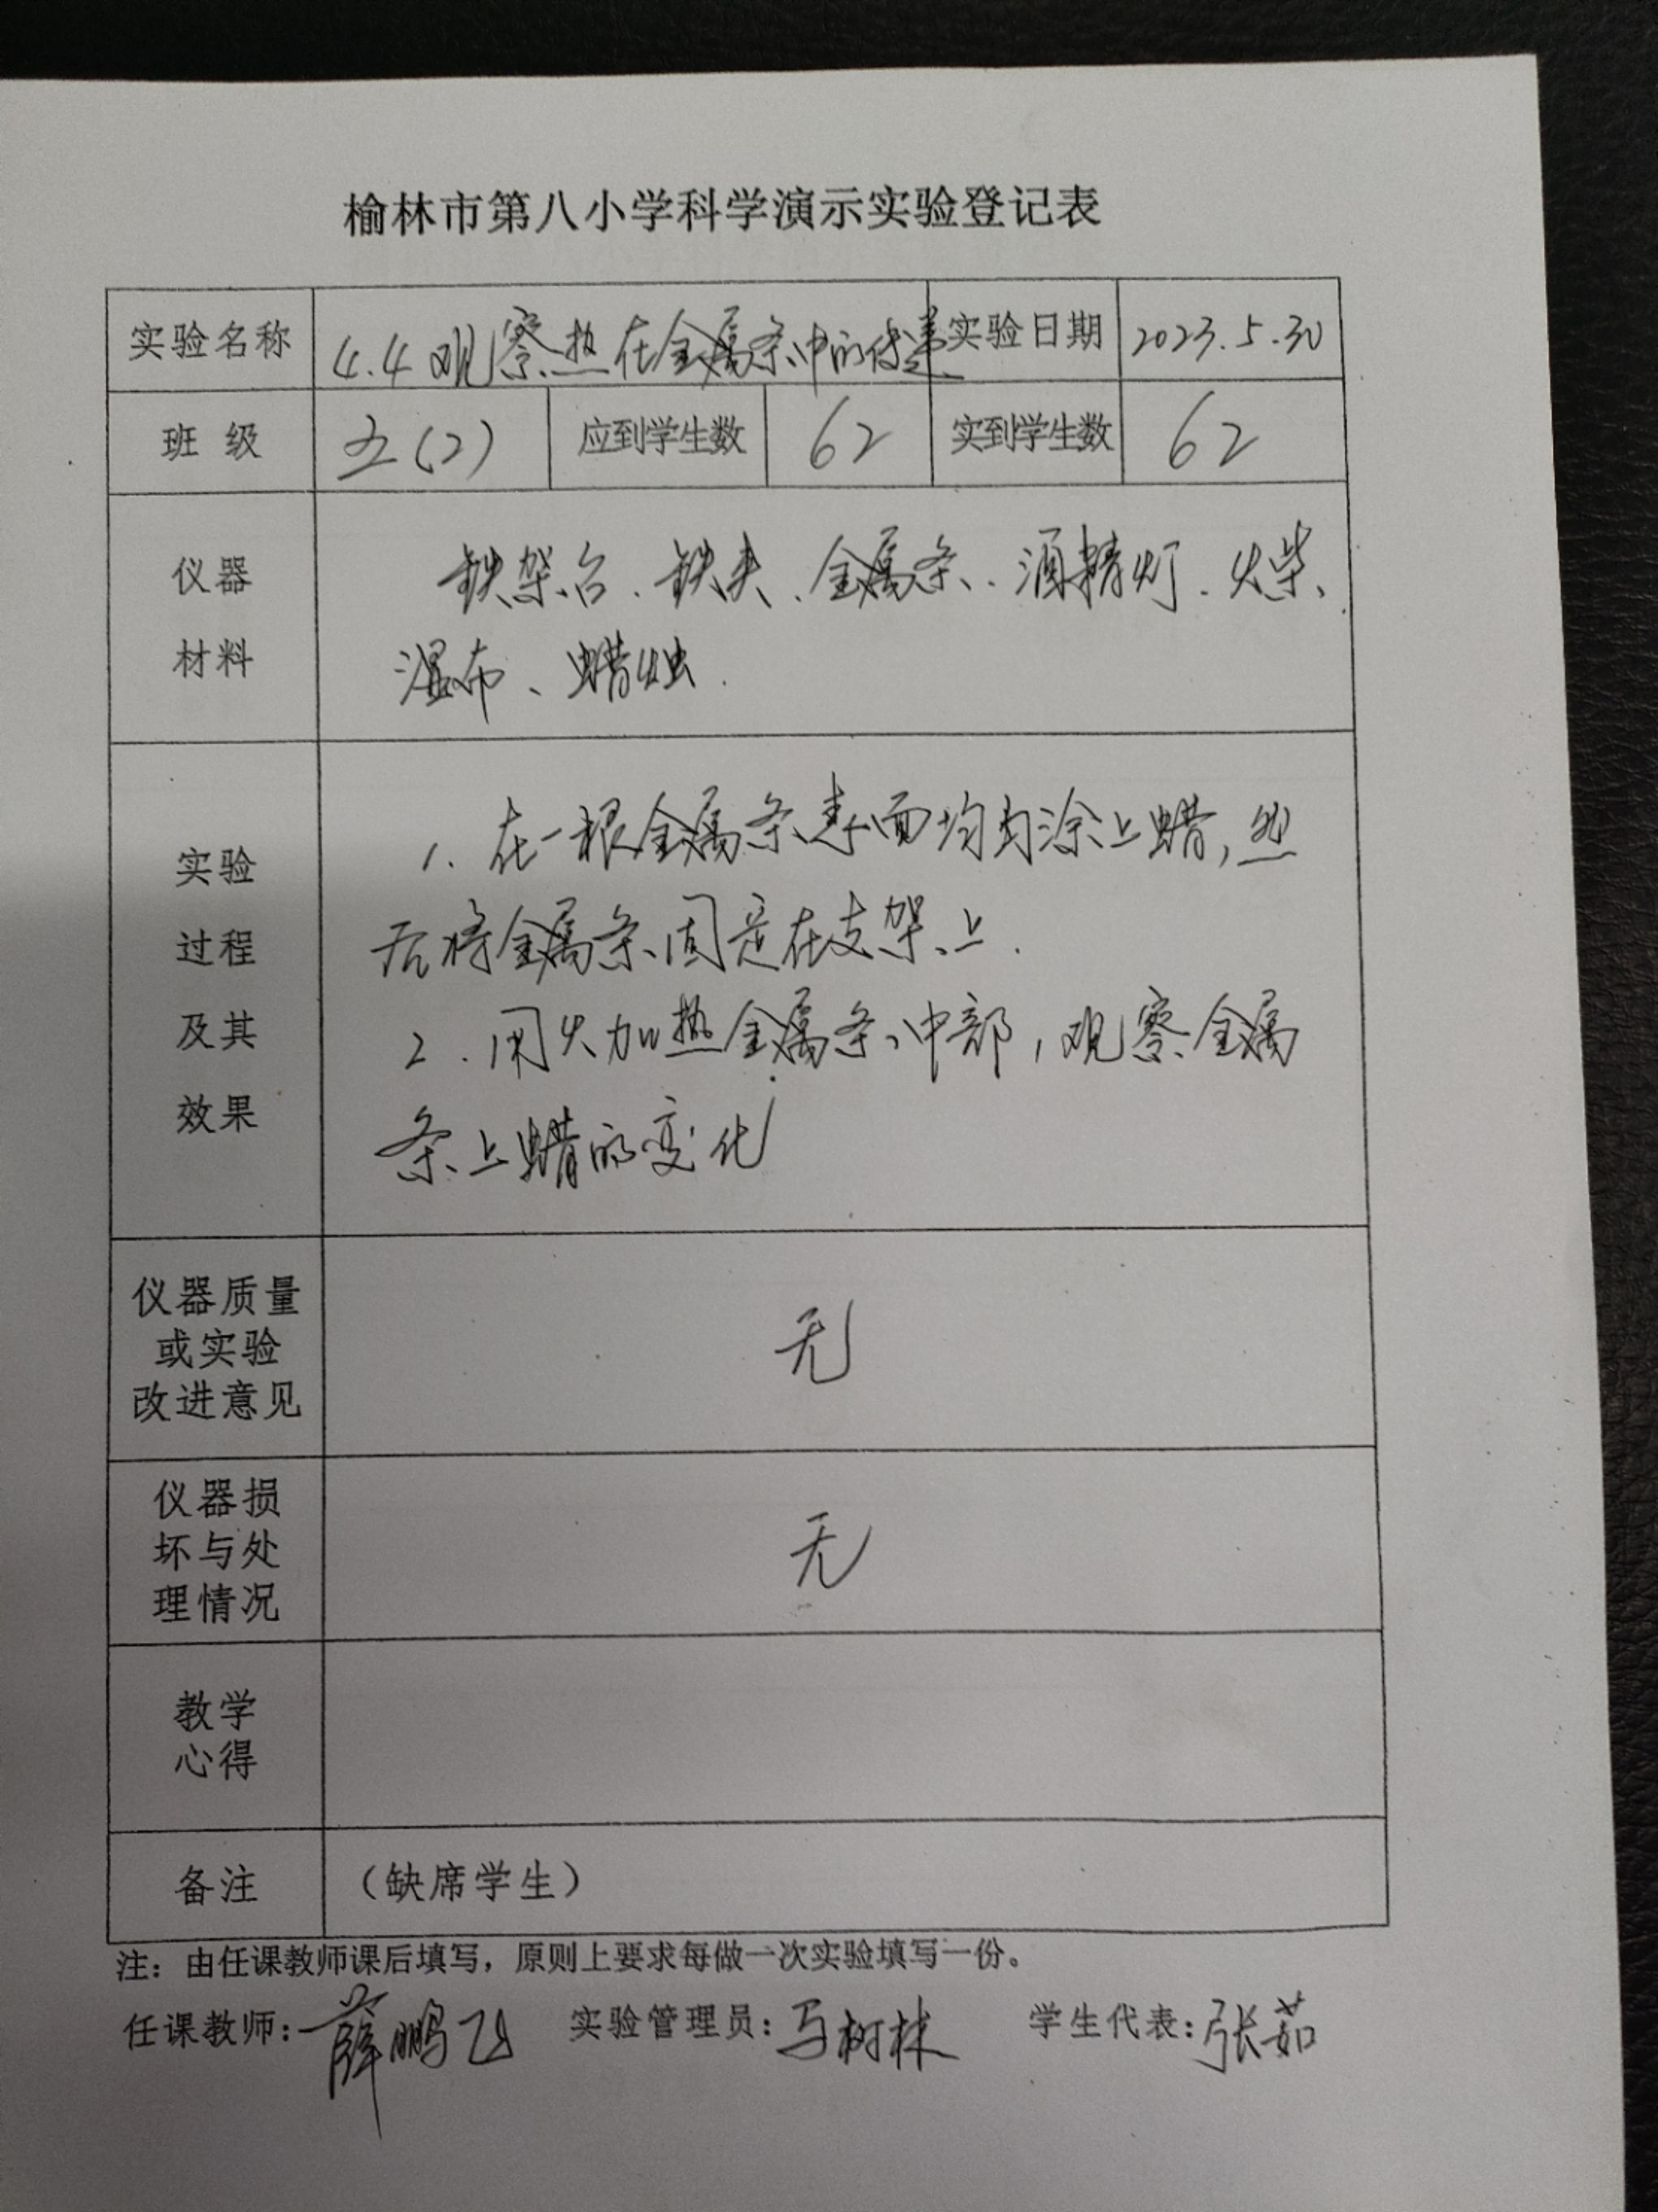 榆林市第八小学科学演示实验登记表
实验名称 4.4 观察热在金属条中的传递 实验日期 2023.5.30
班 级 五(2) 应到学生数 62 实到学生数 62
仪器
材料
铁架台、铁夹、金属条、酒精灯、火柴、
湿布、蜡烛.
实验
过程
及其
效果
1. 在一根金属条表面均匀涂上蜡,然
后将金属条固定在支架上.
2. 用火加热金属条中部,观察金属
条上蜡的变化
仪器质量
或实验
改进意见
无
仪器损
坏与处
理情况
无
教学
心得
备注 （缺席学生）
注：由任课教师课后填写，原则上要求每做一次实验填写一份。
任课教师: 薛鹏飞 实验管理员: 马树林 学生代表: 张茹